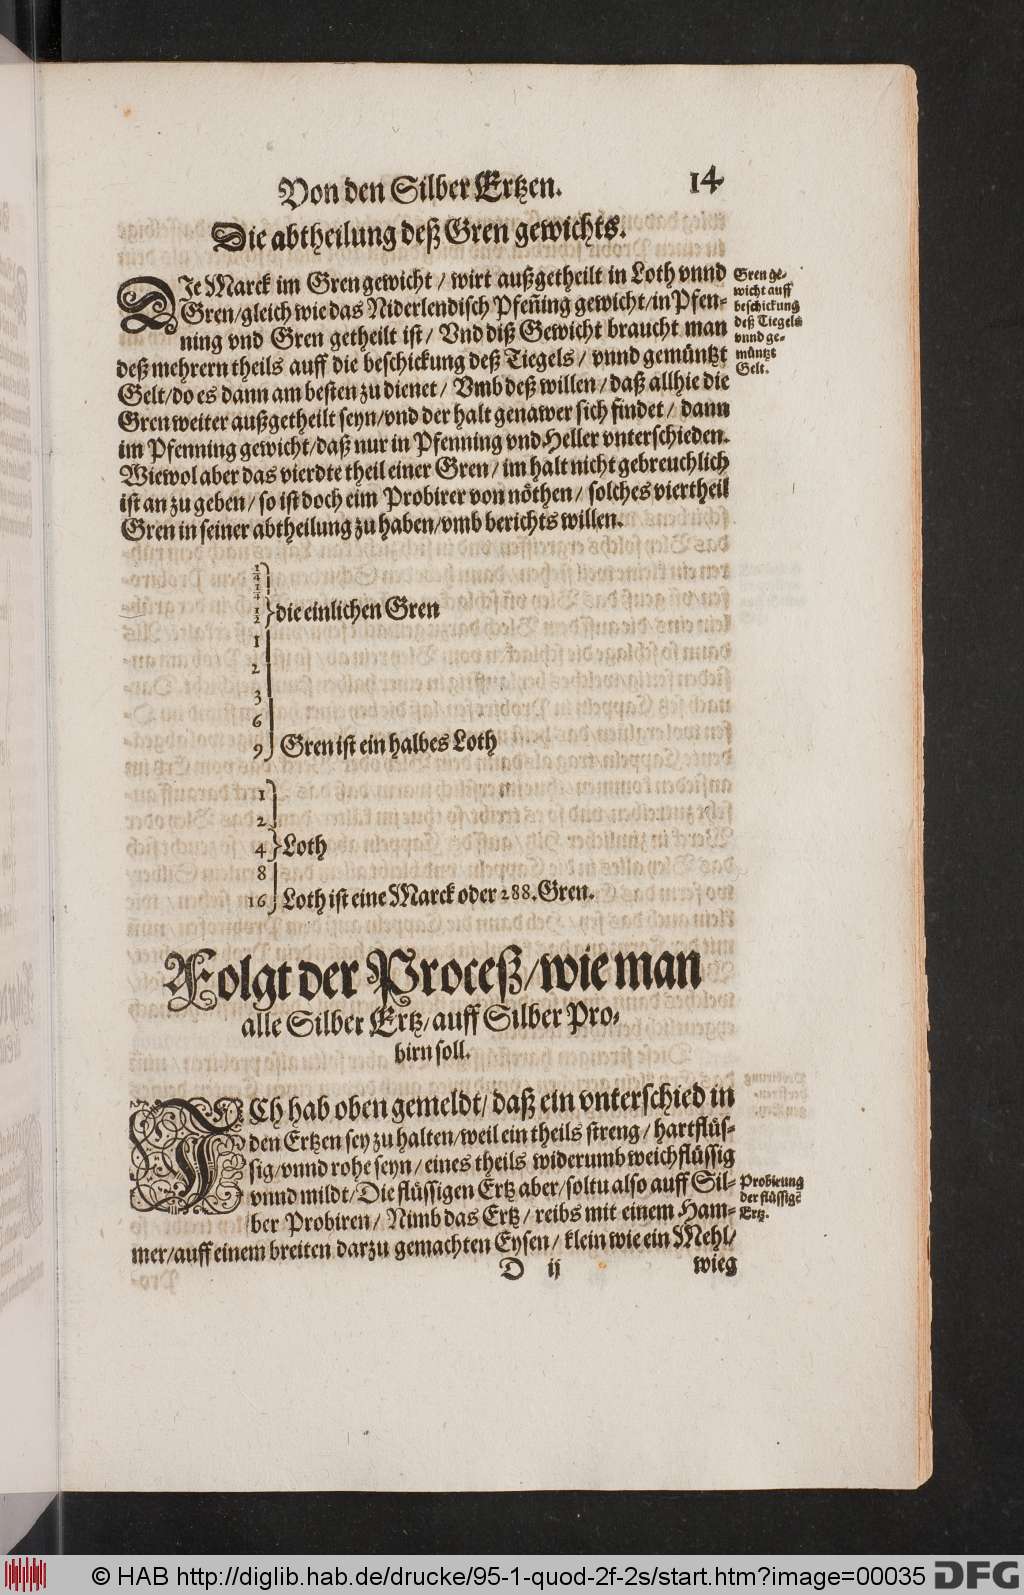 Von den Silber Ertzen. 14
Die abtheilung deß Gren gewichts.
DJe Marck im Gren gewicht / wirt außgetheilt in Loth vnnd
Gren/gleich wie das Niderlendisch Pfeñing gewicht/in Pfen-
ning vnd Gren getheilt ist/ Vnd diß Gewicht braucht man
deß mehrern theils auff die beschickung deß Tiegels/ vnnd gemüntzt
Gelt/do es dann am besten zu dienet/ Vmb deß willen/ daß allhie die
Gren weiter außgetheilt seyn/vnd der halt genawer sich findet/ dann
im Pfenning gewicht/daß nur in Pfenning vnd Heller vnterschieden.
Wiewol aber das vierdte theil einer Gren/ im halt nicht gebreuchlich
ist an zu geben/ so ist doch eim Probirer von nöthen/ solches viertheil
Gren in seiner abtheilung zu haben/vmb berichts willen.
Gren ge-
wicht auff
beschickung
deß Tiegels
vnnd ge-
müntzt
Gelt.
1/4
1/4
1/2 die einlichen Gren
1
2
3
6
9 Gren ist ein halbes Loth
1
2
4 Loth
8
16 Loth ist eine Marck oder 288. Gren.
Folgt der Proceß/wie man
alle Silber Ertz/auff Silber Pro-
birn soll.
JCh hab oben gemeldt/ daß ein vnterschied in
den Ertzen sey zu halten/weil ein theils streng/ hartflüs-
sig/vnnd rohe seyn/eines theils widerumb weichflüssig
vnnd mildt/Die flüssigen Ertz aber/soltu also auff Sil-
ber Probiren/ Nimb das Ertz/ reibs mit einem Ham-
mer/auff einem breiten darzu gemachten Eysen/ klein wie ein Mehl/
Probirung
der flüssigē
Ertz.
D ij wieg
© HAB http://diglib.hab.de/drucke/95-1-quod-2f-2s/start.htm?image=00035 DFG